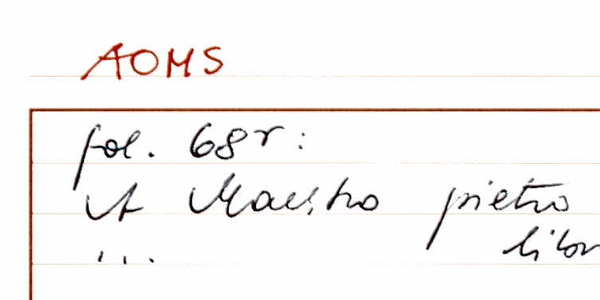 AOMS
fol. 68r:
A Maestro pietro
...